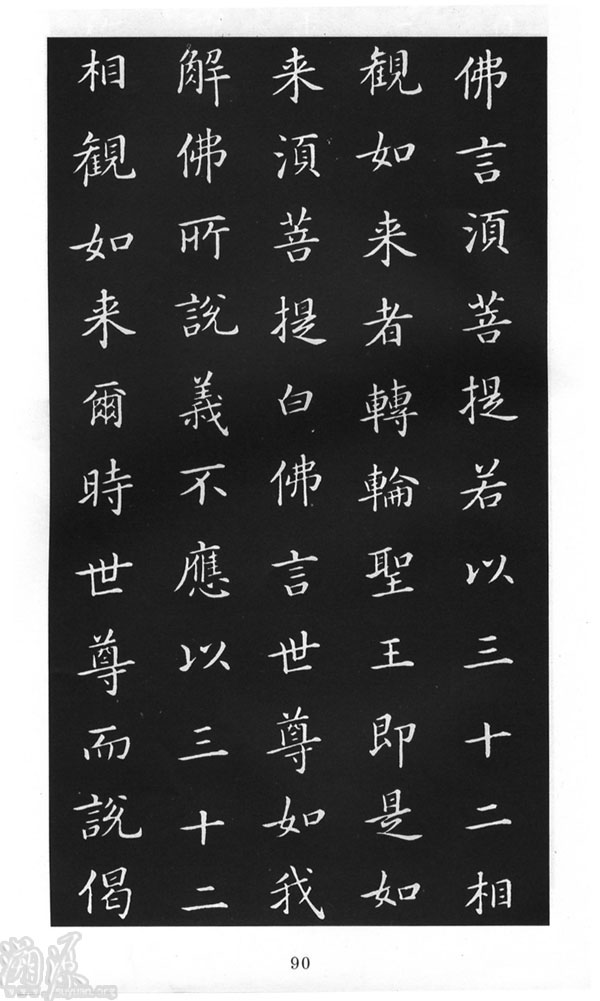 佛言須菩提若以三十二相
觀如来者轉輪聖王即是如
来須菩提白佛言世尊如我
解佛所說義不應以三十二
相觀如来爾時世尊而說偈
90
溯源